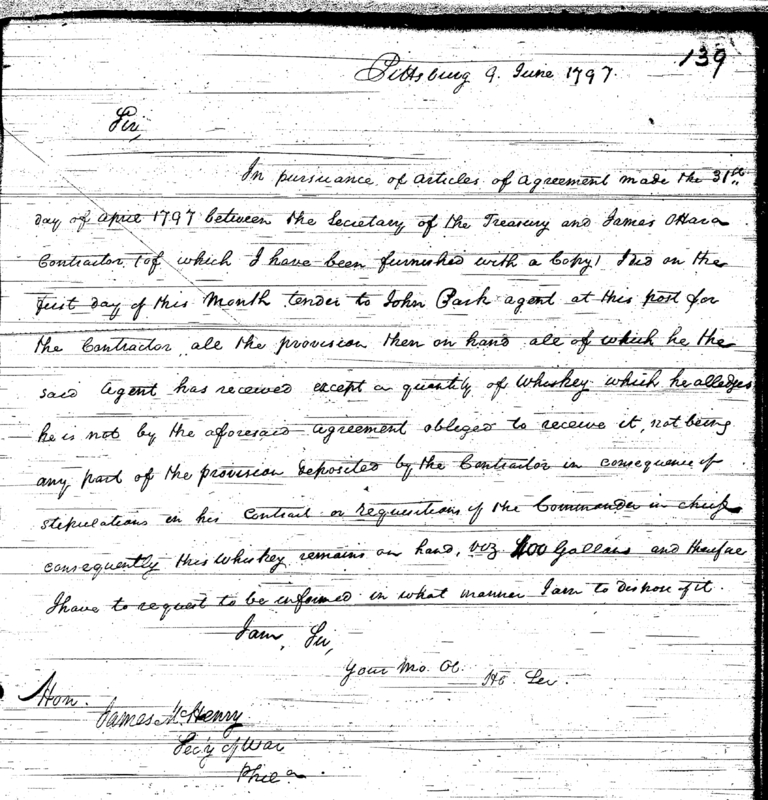 139
Pittsburg 9. June 1797.
Sir,
In pursuance of articles of agreement made the 31st
day of april 1797 between the Secretary of the Treasury and James OHara
Contractor (of which I have been furnished with a Copy) I did on the
first day of this Month tender to John Park agent at this post for
the Contractor all the provision then on hand all of which he the
said Agent has received except a quantity of Whiskey which he alledges
he is not by the aforesaid agreement obliged to receive it, not being
any part of the provision deposited by the Contractor in consequence of
stipulations in his Contract or requisitions of the Commander in chief
consequently this Whiskey remains on hand, viz 400 Gallons and therefore
I have to request to be informed in what manner I am to dispose of it.
I am, Sir,
Your Mo. Ob. Ho Ser.
Hon.
James McHenry
Secy of War
Phila.